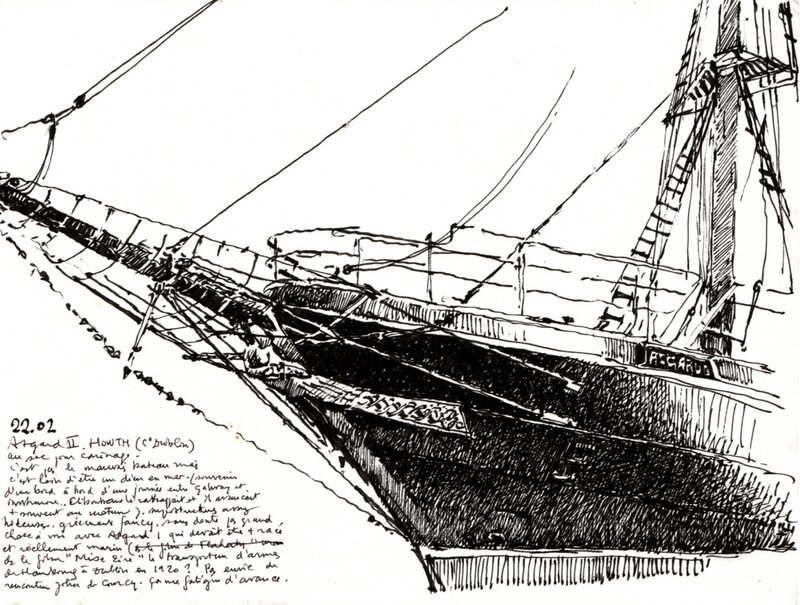 ASGARD II
22.02
Asgard II. HOWTH (Cº Dublin)
au sec pour carénage.
c'est pas le mauvais bateau mais
c'est loin d'être un dieu en mer. (souvenir
d'un bord à bord d'une journée entre Galway et
et il avançait
+ souvent au moteur). superstructure assez
hideuse. gréement fancy. sans doute pas grand
chose à voir avec Asgard 1 qui devait être + racé
et réellement marin (
de le film "Mise Eire" le transporteur d'armes
de à Dublin en 1920 ? Pas envie de
rencontrer John de Courcy. ça me fatigue d'avance.